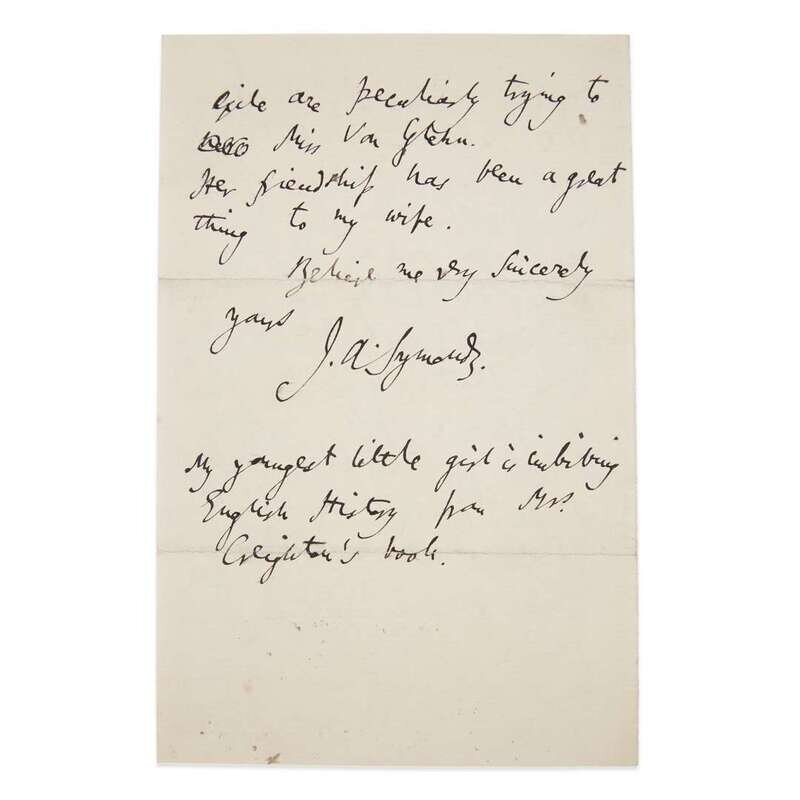 exile are peculiarly trying to
Miss Von Glehn.
Her friendship has been a great
thing to my wife.
Believe me very sincerely
yours
J. A. Symonds.
My youngest little girl is imbibing
English History from Mrs.
Creighton's book.